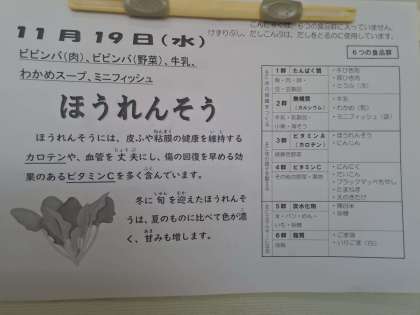 こんにゃくは、6つの食品群に入っていません。
けずりぶし、だしこんぶは、だしをとるのに使用しています。
11月19日(水)
ビビンバ(肉)、ビビンバ(野菜)、牛乳、
わかめスープ、ミニフィッシュ
ほうれんそう
ほうれんそうには、皮ふや粘膜の健康を維持する
カロテンや、血管を丈夫にし、傷の回復を早める効
果のあるビタミンCを多く含んでいます。
冬に旬を迎えたほうれんそ
うは、夏のものに比べて色が濃
く、甘みも増します。
6つの食品群
1群 たんぱく質
2群 無機質
(カルシウム)
・牛乳
・わかめ(乾)
・ミニフィッシュ(袋)
3群 ビタミンA
(カロテン)
緑黄色野菜
・ほうれんそう
・にんじん
4群 ビタミンC
その他の野菜・果物
・にんにく
・だいこん
・ブラックマッペもやし
・たまねぎ
・えのきたけ
5群 炭水化物
・精白米
・砂糖
6群 脂質
油脂
・ごま油
・いりごま(白)